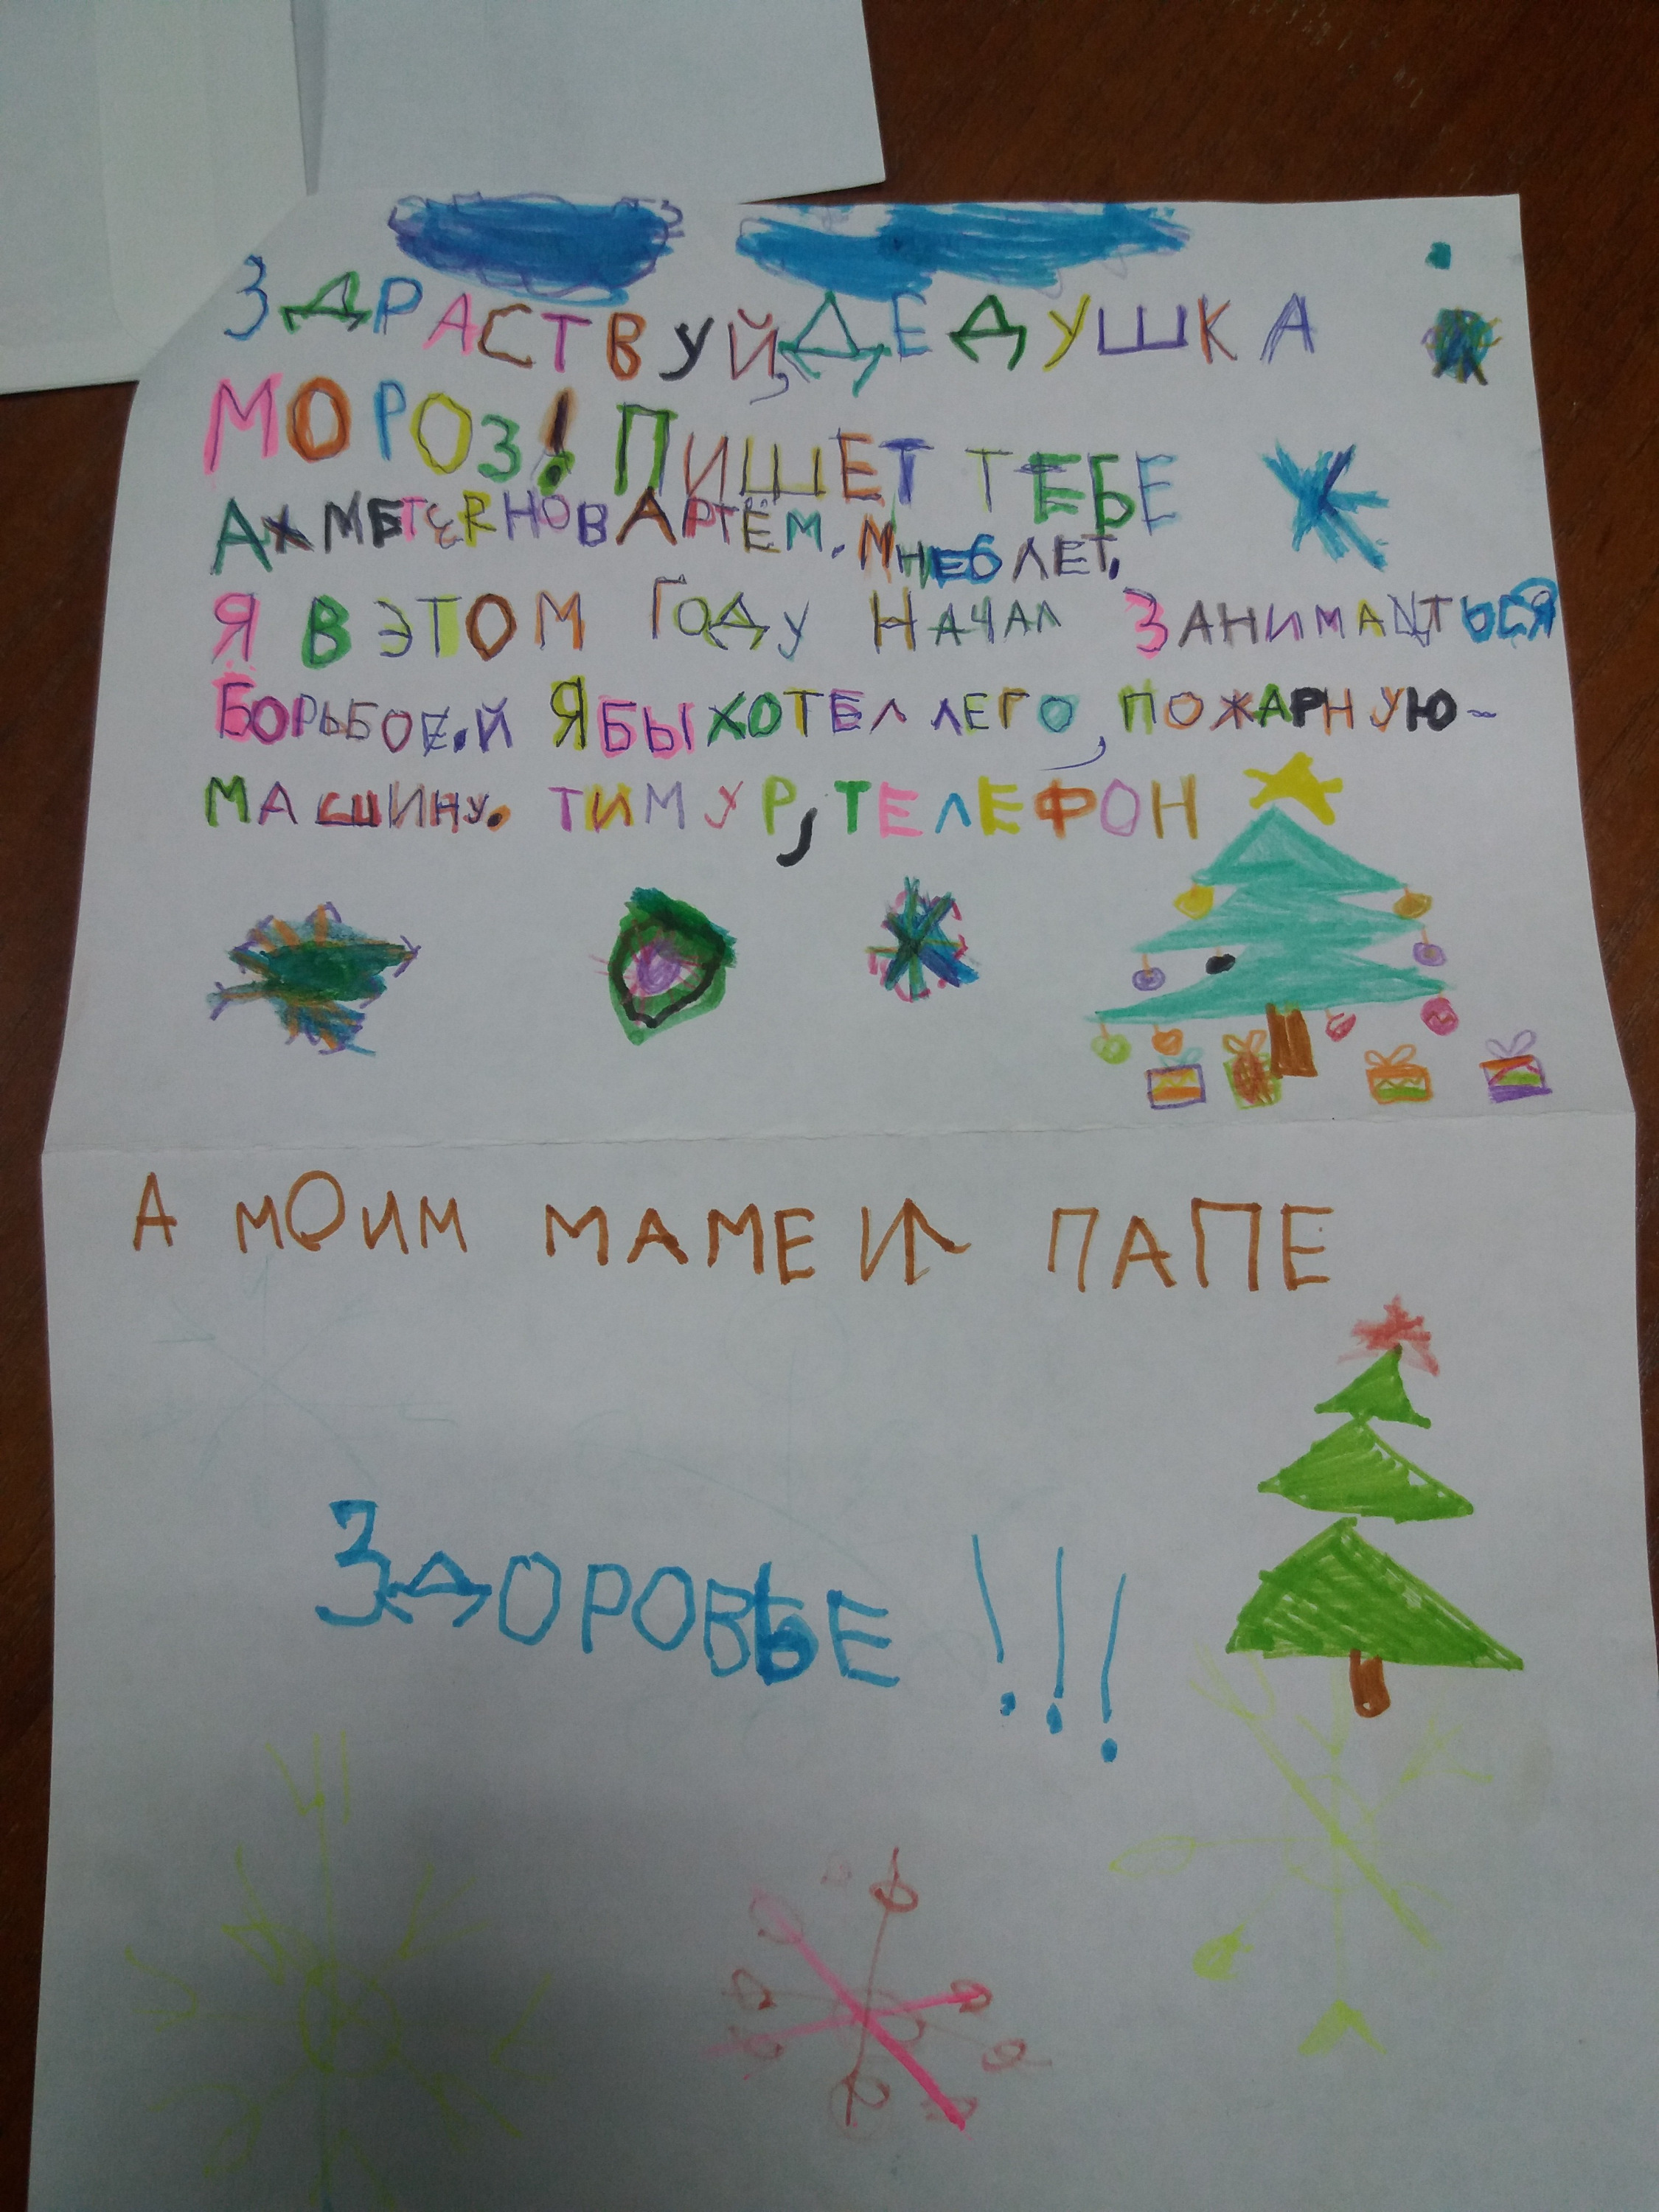 ЗДРАСТВУЙ, ДЕДУШКА
МОРОЗ! ПИШЕТ ТЕБЕ
АРТЁМ. МНЕ 6 ЛЕТ.
Я В ЭТОМ ГОДУ НАЧАЛ ЗАНИМАТЬСЯ
БОРЬБОЕ.Й Я БЫ ХОТЕЛ ЛЕГО, ПОЖАРНУЮ-
МАШИНУ. ТИМУР, ТЕЛЕФОН
А МОИМ МАМЕ И ПАПЕ
ЗДОРОВЬЕ !!!